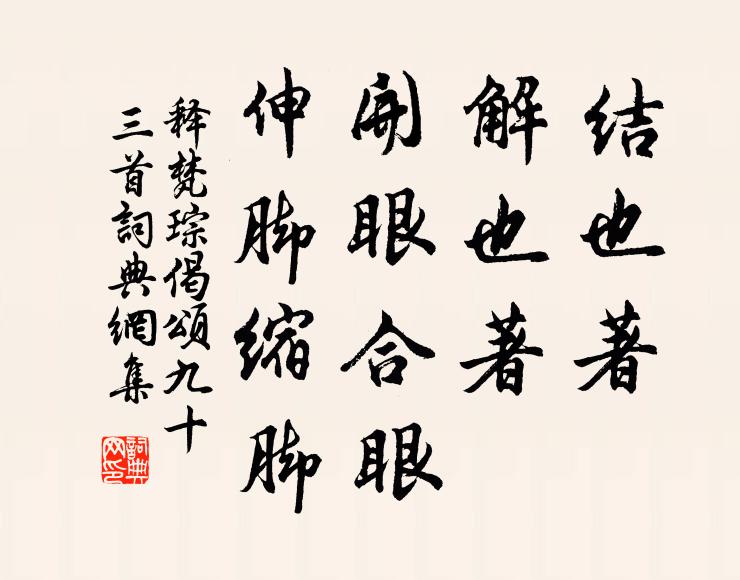 结也著
解也著
開眼合眼
伸脚缩脚
释梵琮偈頌九十
三首詞典網集
詞典
网印